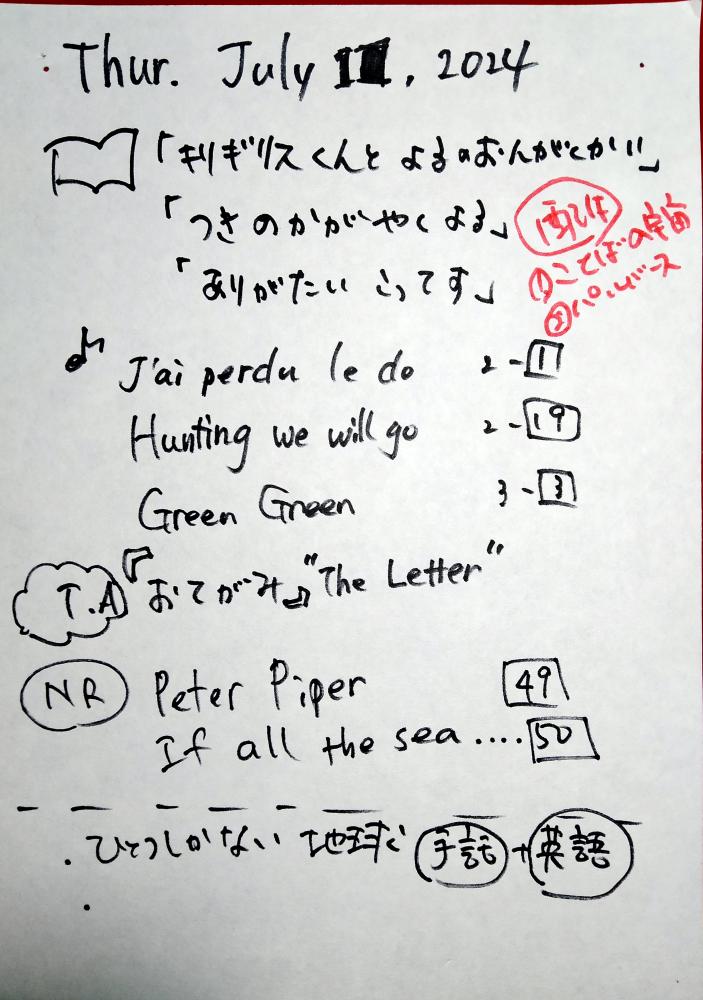 Thur. July 11, 2024
「キリギリスくんと よるのおんがくかい」
「つきのかがやくよる」
「ありがたい こってす」
配布
①ことばの宇宙
②パルバース
J'ai perdu le do 2-1
Hunting we will go 2-19
Green Green 3-3
T.A 『おてがみ』"The Letter"
NR Peter Piper 49
If all the sea....50
ひとつしかない地球 手話+英語